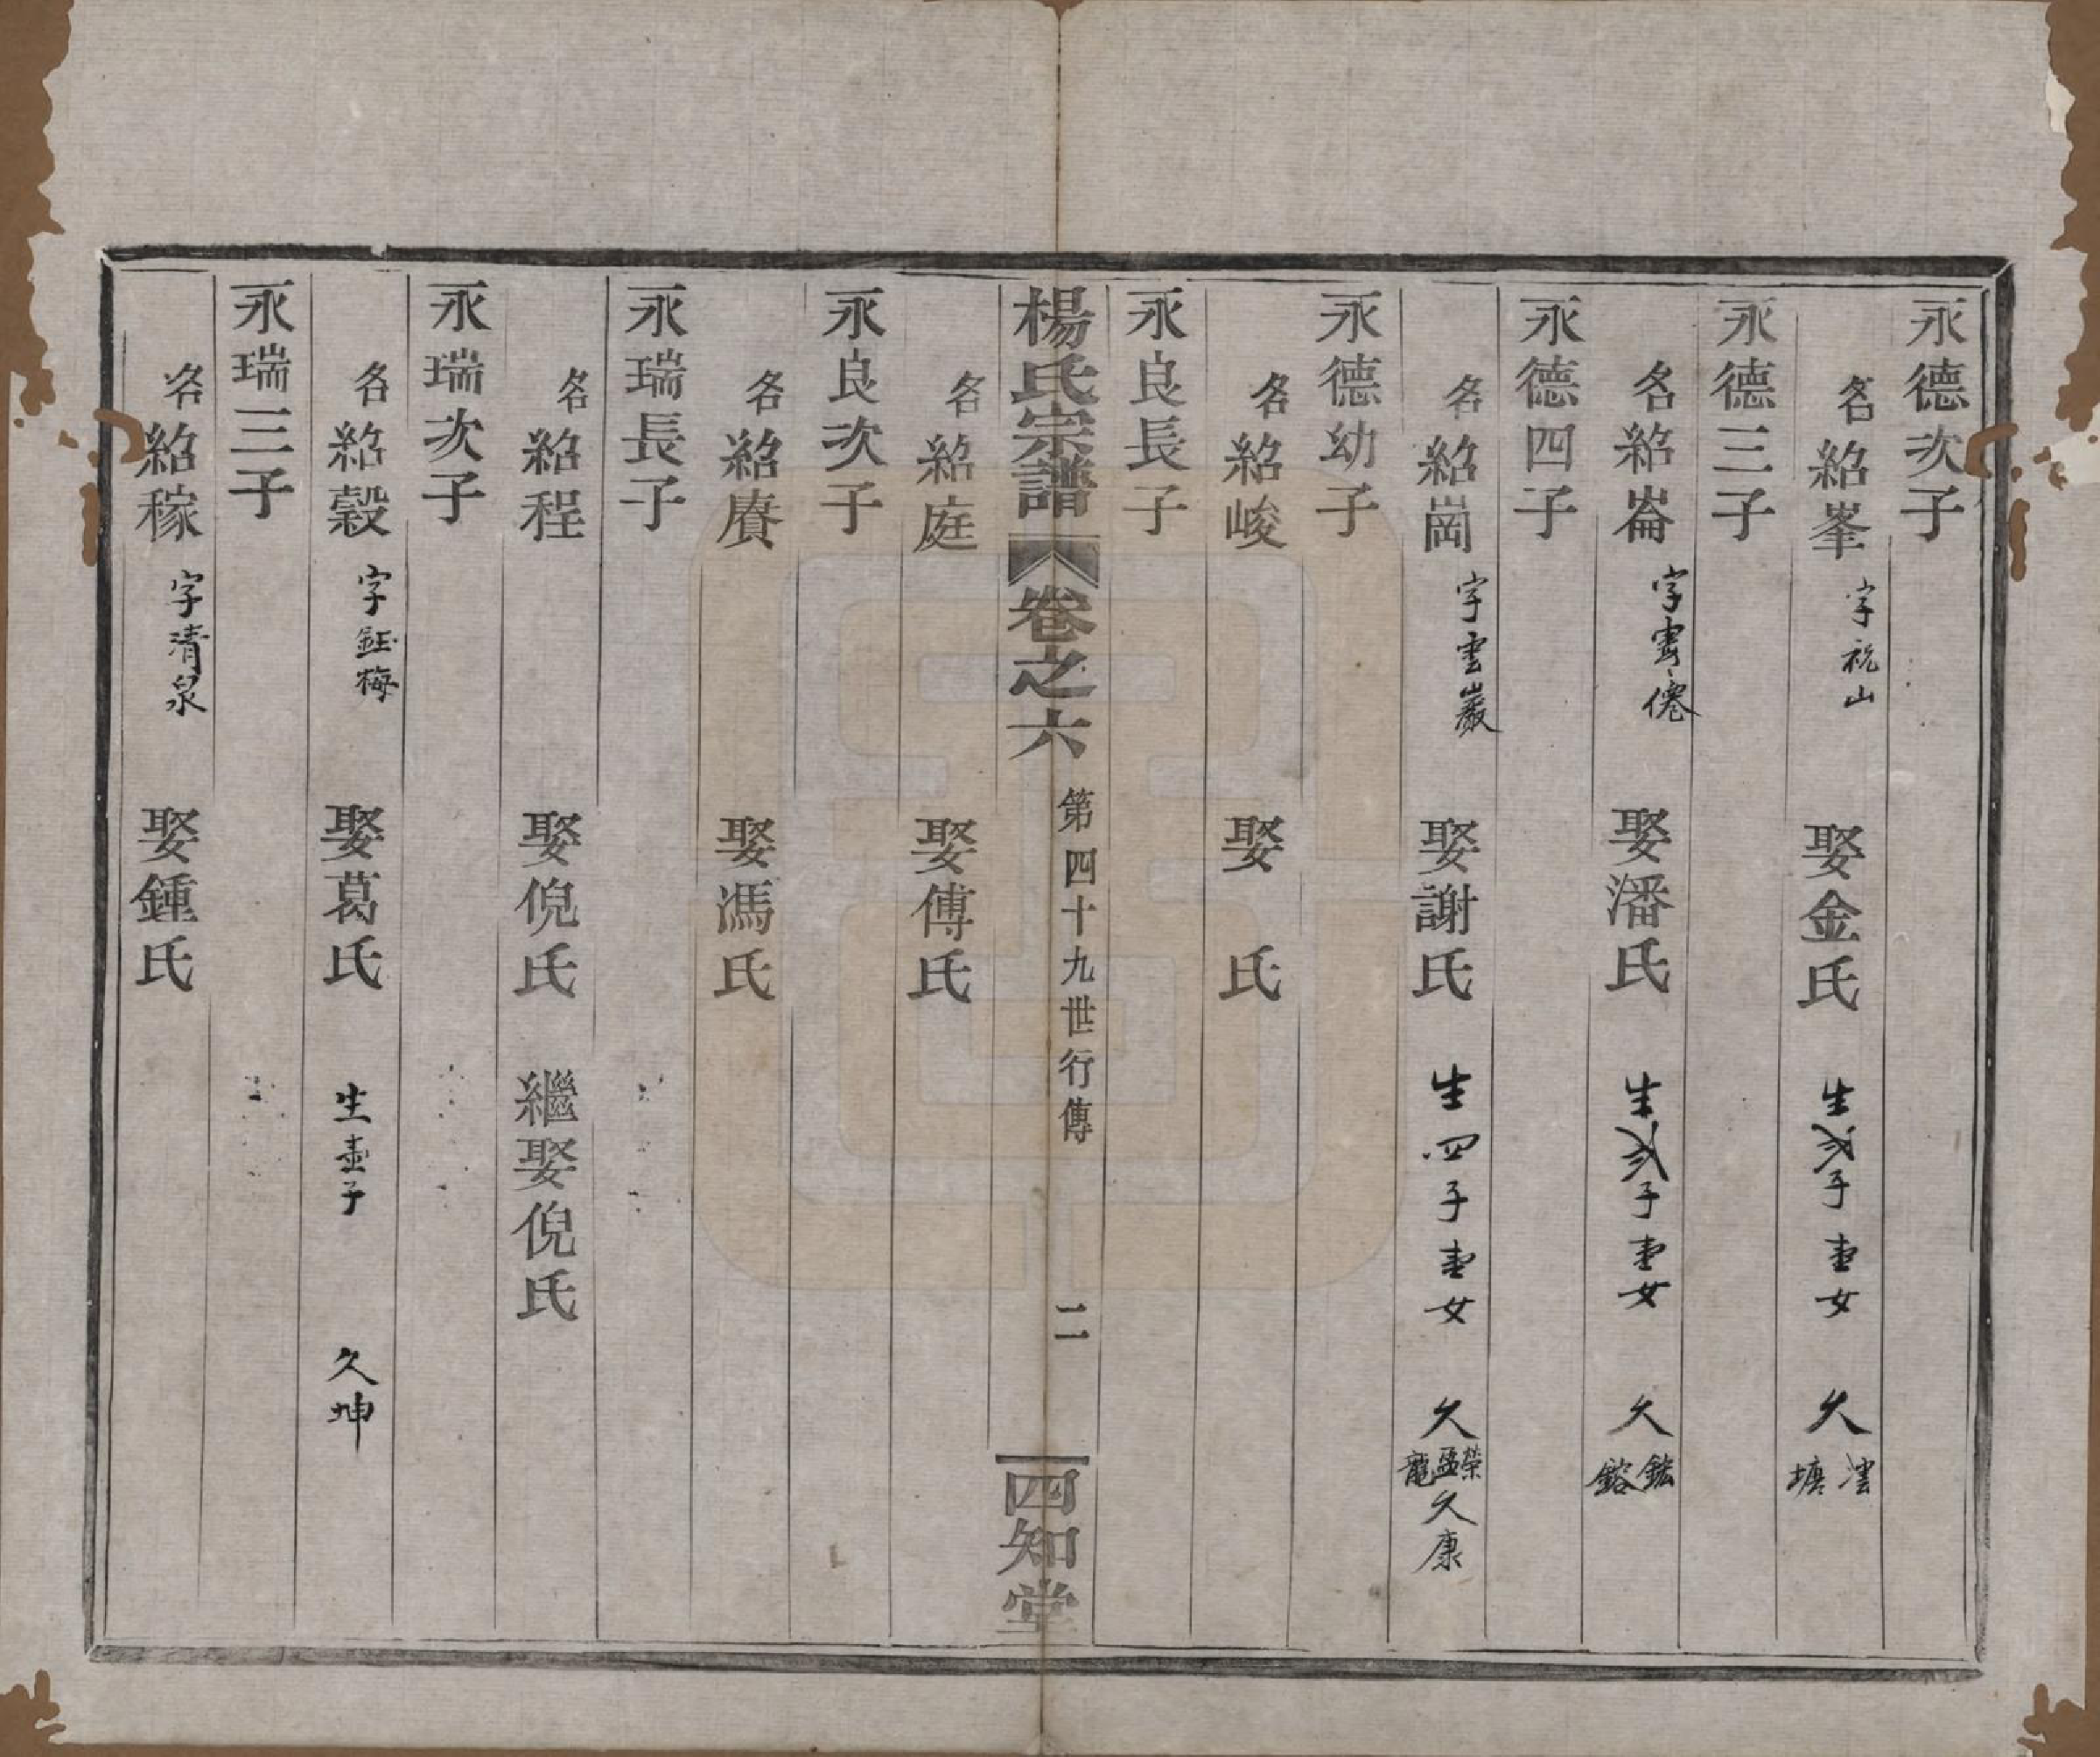 永德次子
名紹峯 字祝山 娶金氏 生弍子壹女 久澐塘
永德三子
名紹崙 字雲僊 娶潘氏 生弍子壹女 久鋐鎔
永德四子
名紹崗 字雲巖 娶謝氏 生四子壹女 久榮孟龍久康
永德幼子
名紹峻 娶 氏
永良長子
楊氏宗譜 卷之六 第四十九世行傳 二 四知堂
名紹庭 娶傅氏
永良次子
名紹賡 娶馮氏
永瑞長子
名紹程 娶倪氏 繼娶倪氏
永瑞次子
名紹穀 字鈺梅 娶葛氏 生壹子 久坤
永瑞三子
名紹稼 字清泉 娶鍾氏